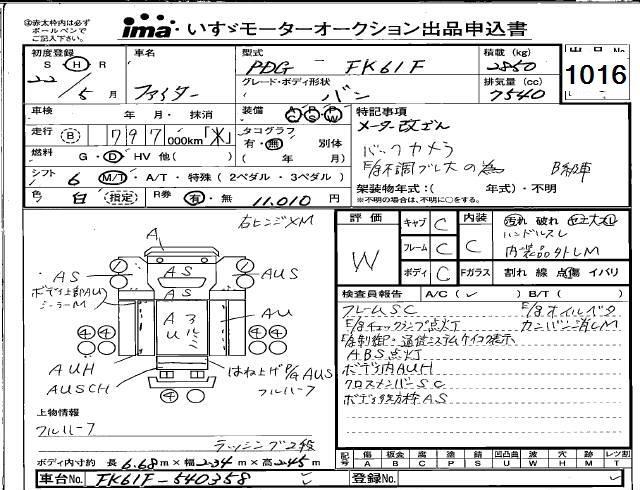 ㊟赤太枠内は必ず
ボールペンで
ご記入下さい。
ima いすゞモーターオークション出品申込書
初度登録 車名 型式 積載 (kg) 出品No.
S H R PDG - FK61F 2850
22 / 5月 ファイター グレード・ボディ形状 排気量 (cc) 1016
バン 7540
車検 年 月・ 抹消 装備 AC PS PW 特記事項
走行 (B) 797 000km「米」 タコグラフ メーター改ざん
有・無 別体 バックカメラ
燃料 G・D・HV 他( ) ( 年 月) E/g不調ブレ大の為 B級車
シフト 6 M/T・A/T・特殊 (2ペダル・3ペダル)
架装物年式:( 年式)・不明
色 白 (指定) R券 有・無 11,010 円
※不明の場合は、不明に○をする。
右ヒンジXM
評価 キャブ C 内装 汚れ 破れ
ハンドルスレ
W フレーム C C 内装品外しM
ボディ C Fガラス 割れ 線 点傷 イバリ
A
AS AS AUS
ボディ上部AU
ミラーM
AS
A アルミ AU
U
④④ ④④
AUH はね上げP/G AUS
AUSCH フルハーフ
④
検査員報告 A/C(✓) B/T( )
フレームSC E/gオイルベタ
E/gチェックランプ点灯 カンバン消しM
ABS点灯
ボディ内AUH
クロスメンバーSC
上物情報
フルハーフ
ラッシング2段
ボディ内寸約 長 6.68m×幅 2.34m×高 2.45m
記号 傷 板金 腐 塗 錆 凹凸曲 波 穴 跡 レツ割
A B C P S U W H M T
車台No. FK61F-540358 登録No.